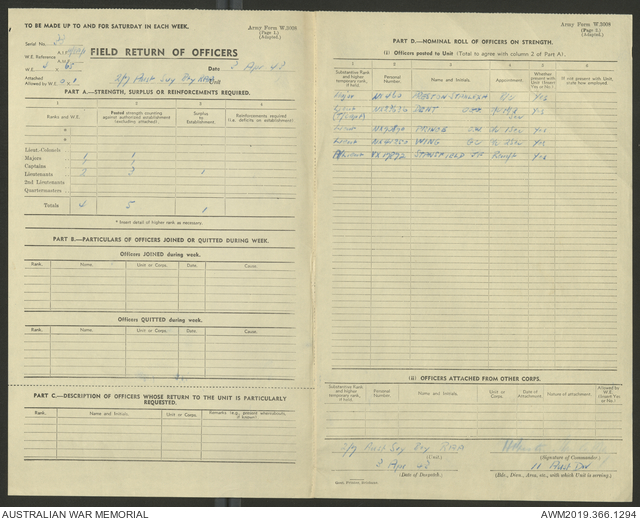 TO BE MADE UP TO AND FOR SATURDAY IN EACH WEEK.
Army Form W.3008
(Page 1.)
(Adapted.)
Serial No.
W.E. Reference
FIELD RETURN OF OFFICERS
Date 3 Apr 43
Attached
Allowed by W.E.
2/9 Aust Svy Bty RAA
Unit
PART A.—STRENGTH, SURPLUS OR REINFORCEMENTS REQUIRED.
1 2 3 4
Ranks and W.E.
Posted strength counting against authorised establishment (excluding attached).
Surplus to Establishment.
Reinforcements required (i.e. deficits on establishment)
*
*
Lieut.-Colonels
Majors 1 1
Captains 1 1
Lieutenants 2 3 1
2nd Lieutenants
Quartermasters
Totals 4 5 1
* Insert detail of higher rank as necessary.
PART B.—PARTICULARS OF OFFICERS JOINED OR QUITTED DURING WEEK.
Officers JOINED during week.
Rank. Name. Unit or Corps. Date. Cause.
Officers QUITTED during week.
Rank. Name. Unit or Corps. Date. Cause.
PART C.—DESCRIPTION OF OFFICERS WHOSE RETURN TO THE UNIT IS PARTICULARLY
REQUESTED.
Rank. Name and Initials. Unit or Corps.
Army Form W.3008
(Page 2.)
(Adapted.)
PART D.—NOMINAL ROLL OF OFFICERS ON STRENGTH.
(i) Officers posted to Unit (Total to agree with column 2 of Part A).
1 2 3 4 5 6
Substantive Rank and higher temporary rank, if held.
Personal Number.
Name and Initials.
Appointment.
Whether present with Unit (Insert Yes or No.)
If not present with Unit, state how employed.
Major Yes
Lieut KENT Yes
Lieut PRINCE Yes
Lieut WING Yes
Lieut STANSFIELD Yes
(ii) OFFICERS ATTACHED FROM OTHER CORPS.
Substantive Rank and higher temporary rank, if held.
Personal Number.
Name and Initials.
Unit or Corps.
Date of Attachment.
Nature of attachment.
Allowed by W.E. (Insert Yes or No.)
2/9 Aust Svy Bty RAA
(Unit)
(Signature of Commander)
3 Apr 43
(Date of Despatch.)
11 Aust Div
(Bde., Divn., Area, etc., with which Unit is serving.)
AUSTRALIAN WAR MEMORIAL
AWM2019.366.1294